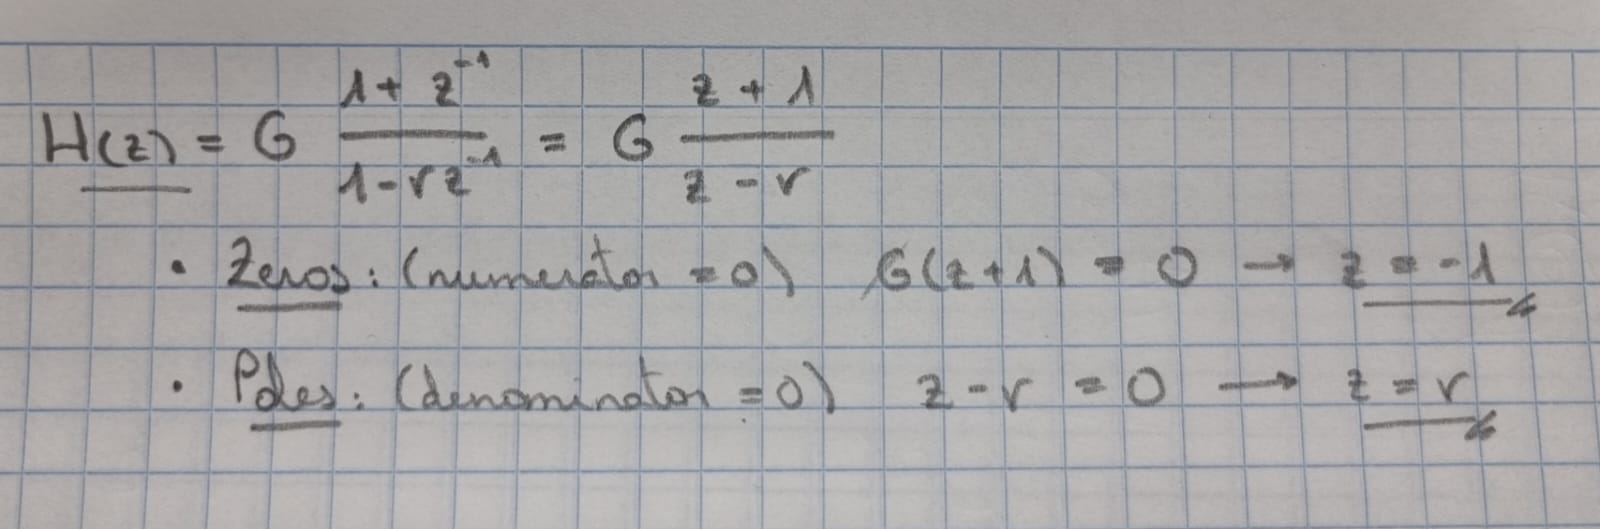 H(z) = G (1 + z⁻¹)/(1 - r z⁻¹) = G (z + 1)/(z - r)
• Zeros: (numerator = 0) G(z+1) = 0 → z = -1
• Poles: (denominator = 0) z - r = 0 → z = r